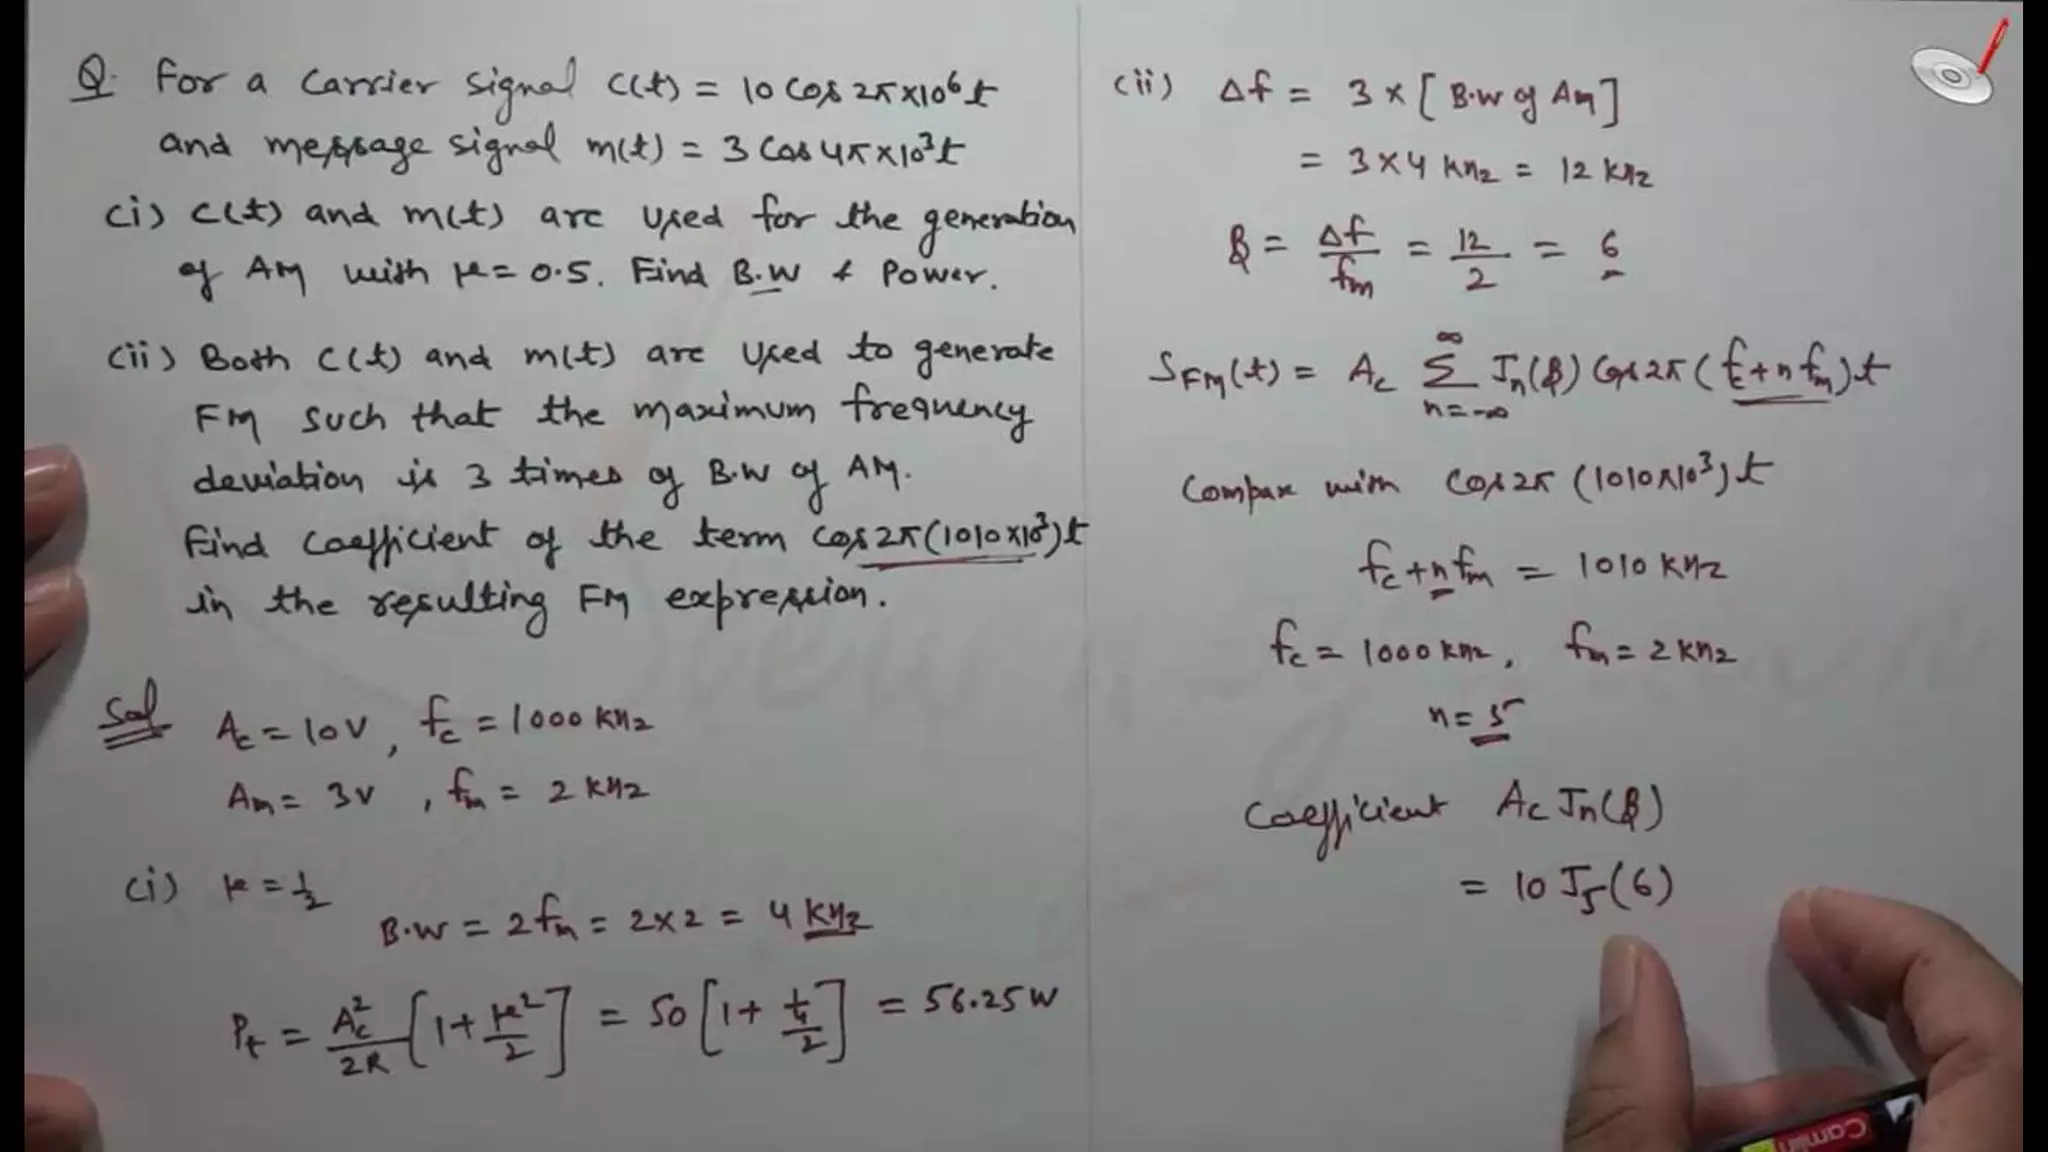 Q. For a Carrier Signal c(t) = 10 Cos 2π×10⁶t
and message signal m(t) = 3 Cos 4π×10³t
(i) c(t) and m(t) are used for the generation
of AM with μ = 0.5. Find B.W & Power.
(ii) Both c(t) and m(t) are used to generate
FM such that the maximum frequency
deviation is 3 times of B.W of AM.
Find coefficient of the term cos2π(1010×10³)t
in the resulting FM expression.
Sol Ac = 10V, fc = 1000 KHz
Am = 3V, fm = 2 KHz
(i) μ = 1/2
B.W = 2fm = 2×2 = 4 KHz
Pt = Ac²/2R [1 + μ²/2] = 50 [1 + (1/4)/2] = 56.25W
(ii) Δf = 3 × [B.W of AM]
= 3×4 KHz = 12 KHz
β = Δf/fm = 12/2 = 6
SFM(t) = Ac ∑ₙ₌₋∞^∞ Jn(β) Cos 2π (fc + n fm)t
Compare with Cos2π (1010×10³)t
fc + n fm = 1010 KHz
fc = 1000 KHz, fm = 2 KHz
n = 5
Coefficient Ac Jn(β)
= 10 J5(6)
Camlin